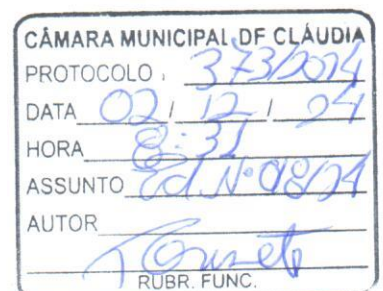 CÂMARA MUNICIPAL DE CLÁUDIA
PROTOCOLO: 373/2024
DATA 02 / 12 / 24
HORA 8:31
ASSUNTO Ed. Nº 98/24
AUTOR
RUBR. FUNC.